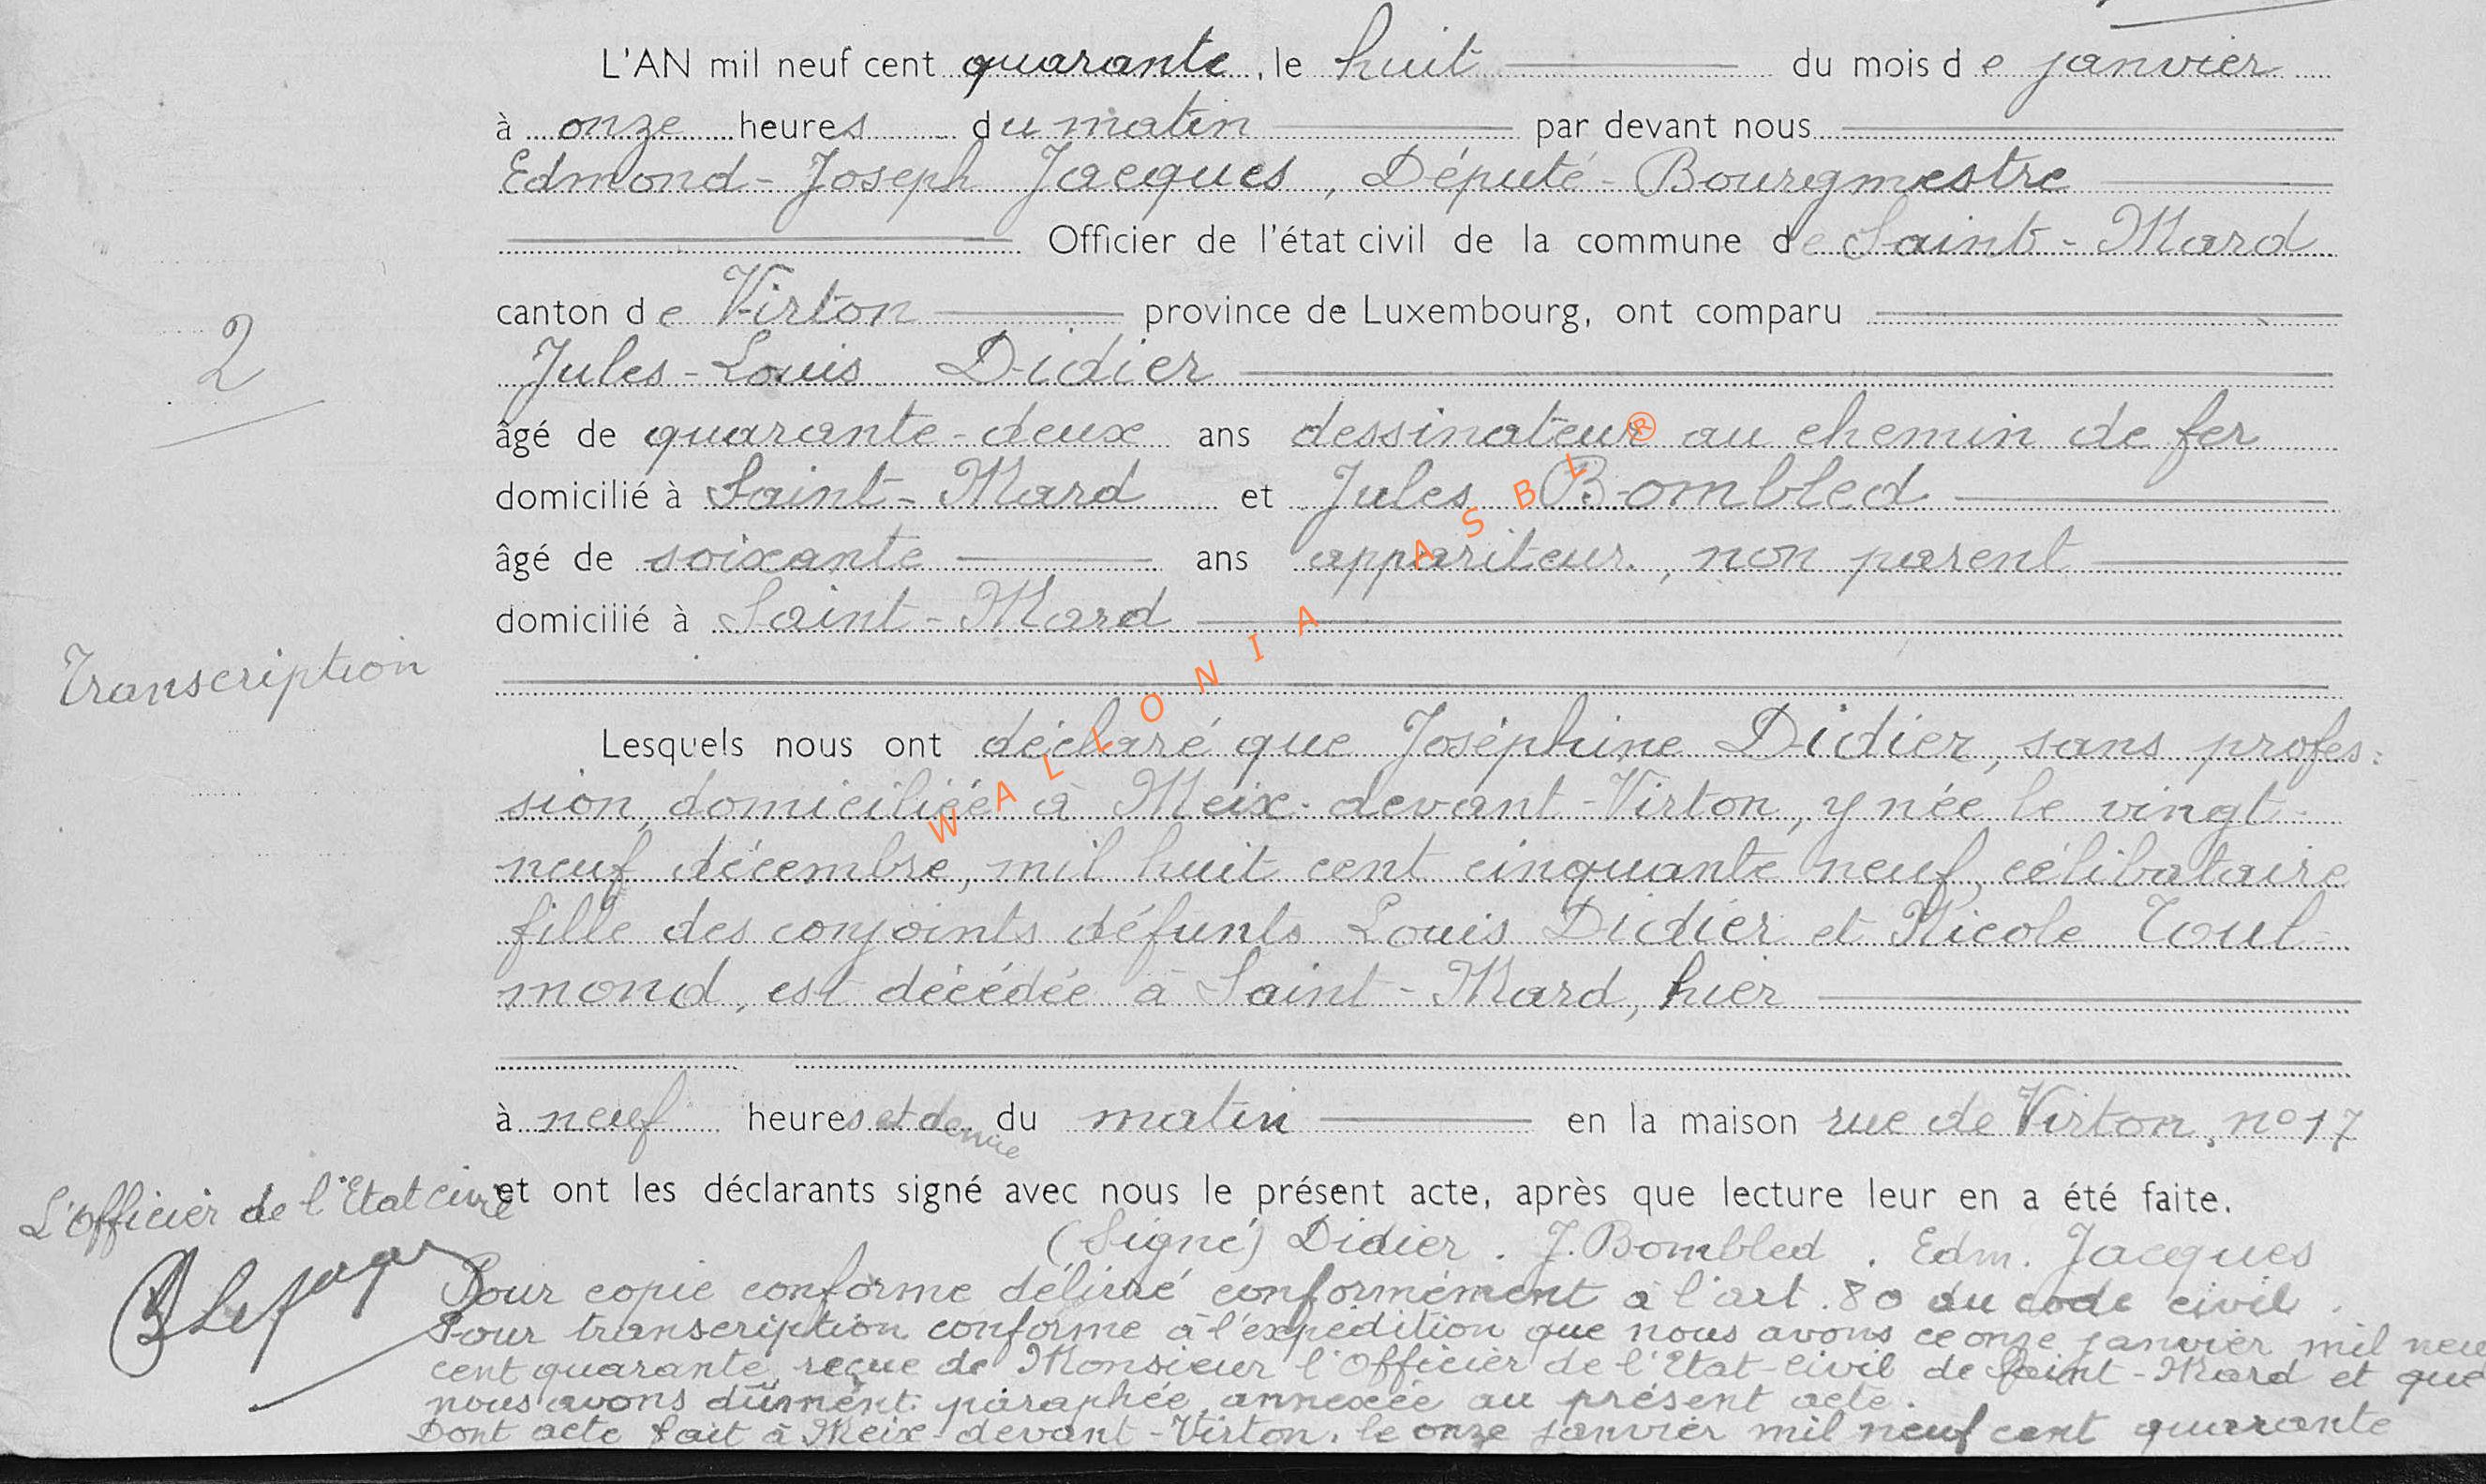 L'AN mil neuf cent quarante, le huit du mois de janvier
à onze heures du matin par devant nous
Edmond-Joseph Jacques, Député-Bourgmestre
Officier de l'état civil de la commune de Saint-Mard
canton de Virton province de Luxembourg, ont comparu
2
Jules-Louis Didier
âgé de quarante-deux ans dessinateur au chemin de fer
domicilié à Saint-Mard et Jules Bombled
âgé de soixante ans appariteur, non parent
domicilié à Saint-Mard
Transcription
Lesquels nous ont déclaré que Joséphine Didier, sans profes:
sion, domiciliée à Meix-devant-Virton, y née le vingt-
neuf décembre, mil huit cent cinquante neuf, célibataire
fille des conjoints défunts Louis Didier et Nicole Toul-
mond, est décédée à Saint-Mard, hier
à neuf heures et demie du matin en la maison rue de Virton, no 17
L'Officier de l'Etat civil
et ont les déclarants signé avec nous le présent acte, après que lecture leur en a été faite.
(Signé) Didier. J. Bombled. Edm. Jacques
Pour copie conforme délivré conformément à l'art. 80 du code civil.
Pour transcription conforme à l'expédition que nous avons ce onze janvier mil neu
cent quarante, reçue de Monsieur l'Officier de l'Etat-Civil de Saint-Mard et que
nous avons dûment paraphée, annexée au présent acte.
Dont acte fait à Meix-devant-Virton, le onze janvier mil neuf cent quarante
WALLONIA ASBL ®